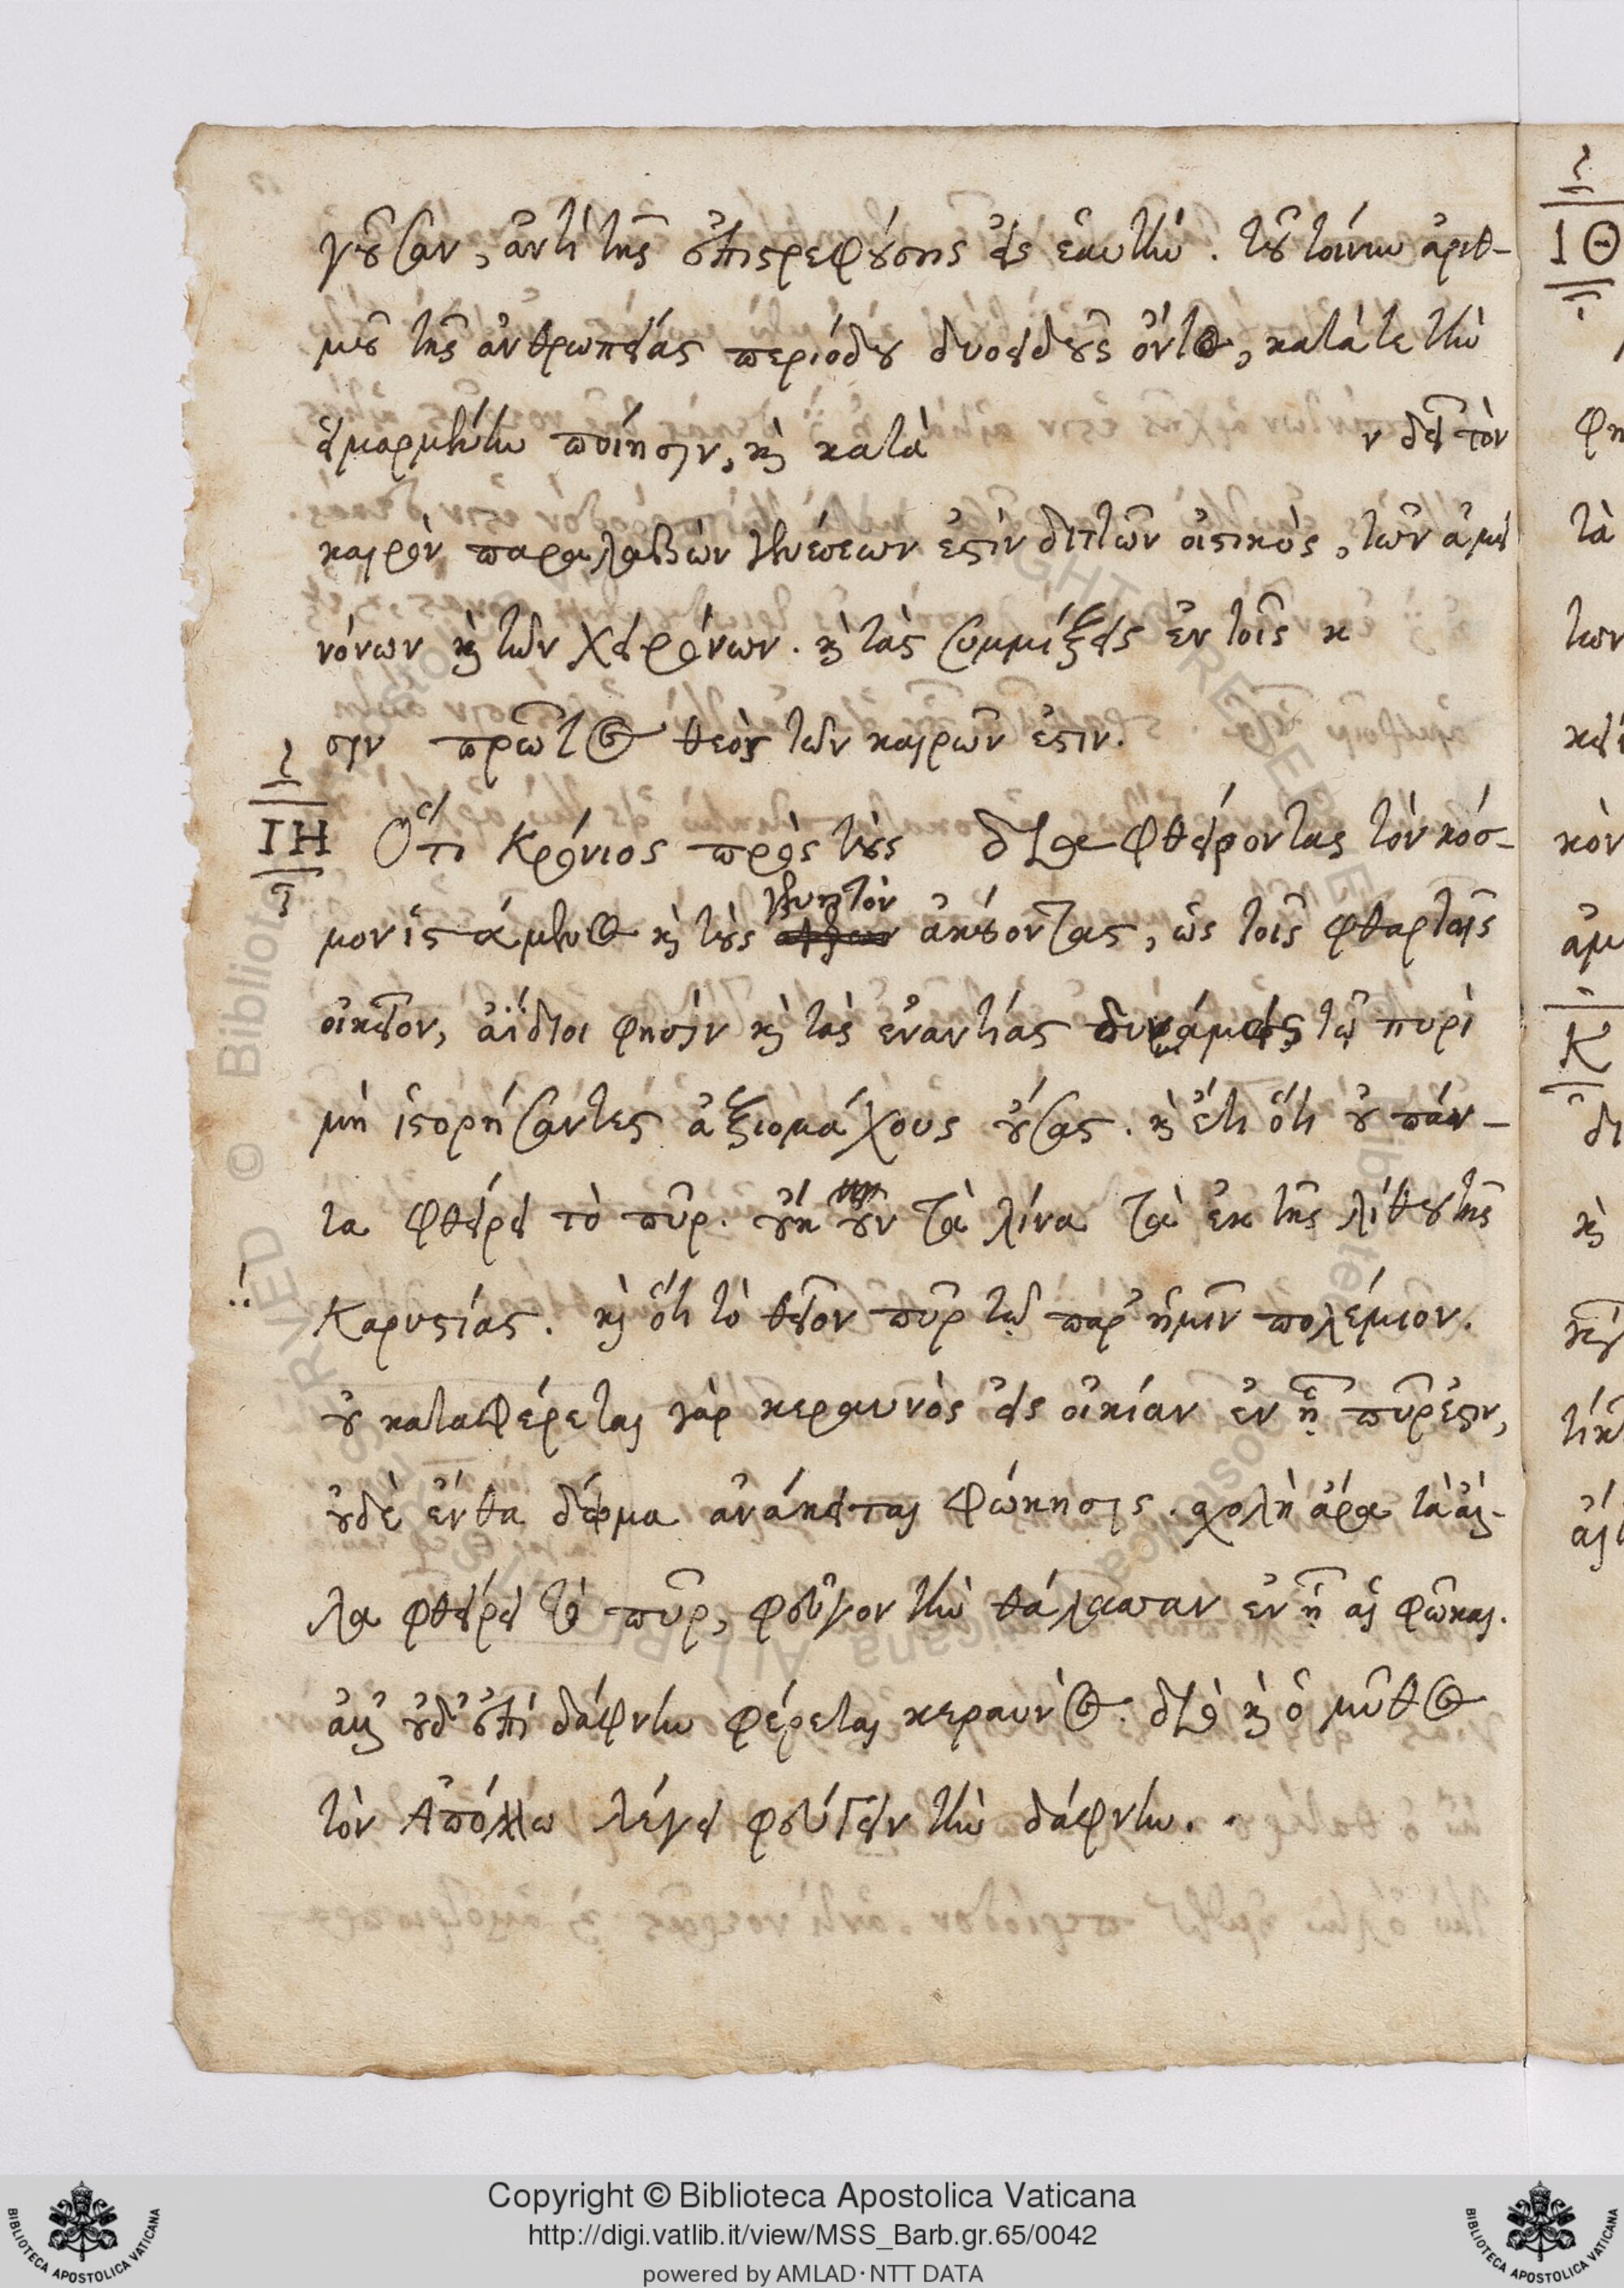 γοῦσαν, ἀντὶ τῆς ἐπιστρεφούσης εἰς ἑαυτήν. τοῦ τοίνυν ἀριθ-
μοῦ τῆς ἀνθρωπείας περιόδου δυοειδοῦς ὄντος, κατά τε τὴν
εἱμαρμένην ποίησιν, καὶ κατὰ ν δεῖ τὸν
καιρὸν παραλαβὼν γενέσεων ἐστὶν διττῶν οἰστικὸς, τῶν ἀμει
νόνων καὶ τῶν χειρόνων. καὶ τὰς συμμίξεις ἐν τοῖς κ
σιν πρῶτος θεὸς τῶν καιρῶν ἐστιν.
ΙΗ
Ὅτι Κρόνιος πρὸς τοὺς φθείροντας τὸν κόσ-
μον καὶ τοὺς γενητὸν ἀκούοντας, ὡς τοῖς φθαρτοῖς
οἰκεῖον, ἀΐδιοι φησὶν καὶ τὰς ἐναντίας δυνάμεις τῷ πυρὶ
μὴ ἱστορήσαντες ἀξιομάχους οὔσας. καὶ ἔτι ὅτι οὐ πάν-
τα φθείρει τὸ πῦρ. οὔκουν τὰ λίνα τὰ ἐκ τῆς λίθου τῆς
Καρυστίας. καὶ ὅτι τὸ θεῖον πῦρ τῷ παρ' ἡμῖν πολέμιον.
οὐ καταφέρεται γὰρ κεραυνὸς εἰς οἰκίαν ἐν ᾗ πῦρ ἐστιν,
οὐδὲ ἔνθα δέρμα ἀνάκειται φώκης. σχολῇ ἄρα τὰ ἄλ-
λα φθείρει τὸ πῦρ, φεῦγον τὴν θάλασσαν ἐν ᾗ αἱ φῶκαι.
ἀλλ' οὐδ' ἐπὶ δάφνην φέρεται κεραυνός. διὸ καὶ ὁ μῦθος
τὸν Ἀπόλλω λέγει φεύγειν τὴν δάφνην.
ΙΘ
Κ
Copyright © Biblioteca Apostolica Vaticana
http://digi.vatlib.it/view/MSS_Barb.gr.65/0042
powered by AMLAD·NTT DATA
BIBLIOTECA APOSTOLICA VATICANA
BIBLIOTECA APOSTOLICA VATICANA